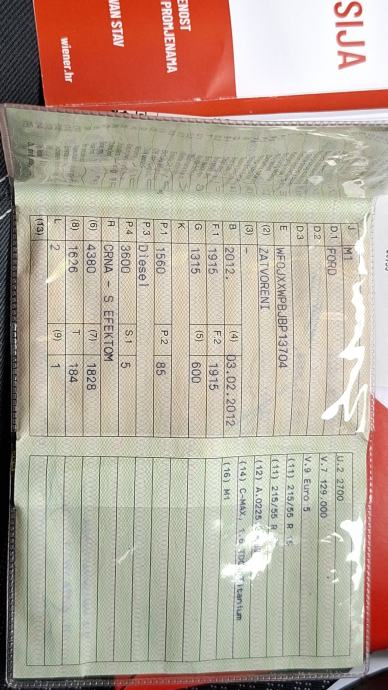 SIJA
ENOST
PROMJENAMA
VAN STAV
wiener.hr
J M1
D.1 FORD
D.2
D.3
E WF0JXXWPBJBP13704
(2) ZATVORENI
(3) -
B 2012. (4) 03.02.2012
F.1 1915 F.2 1915
G 1315 (5) 600
K
P.1 1560 P.2 85
P.3 Diesel
P.4 3600 S.1 5
R CRNA - S EFEKTOM
(6) 4380 (7) 1828
(8) 1626 T 184
L 2 (9) 1
(13)
U.2 2700
V.7 129.000
V.9 Euro 5
(11) 215/55 R
(11) 215/55 R
(12) A.0225
(14) C-MAX, 1.6 TDCi Titanium
(16) M1